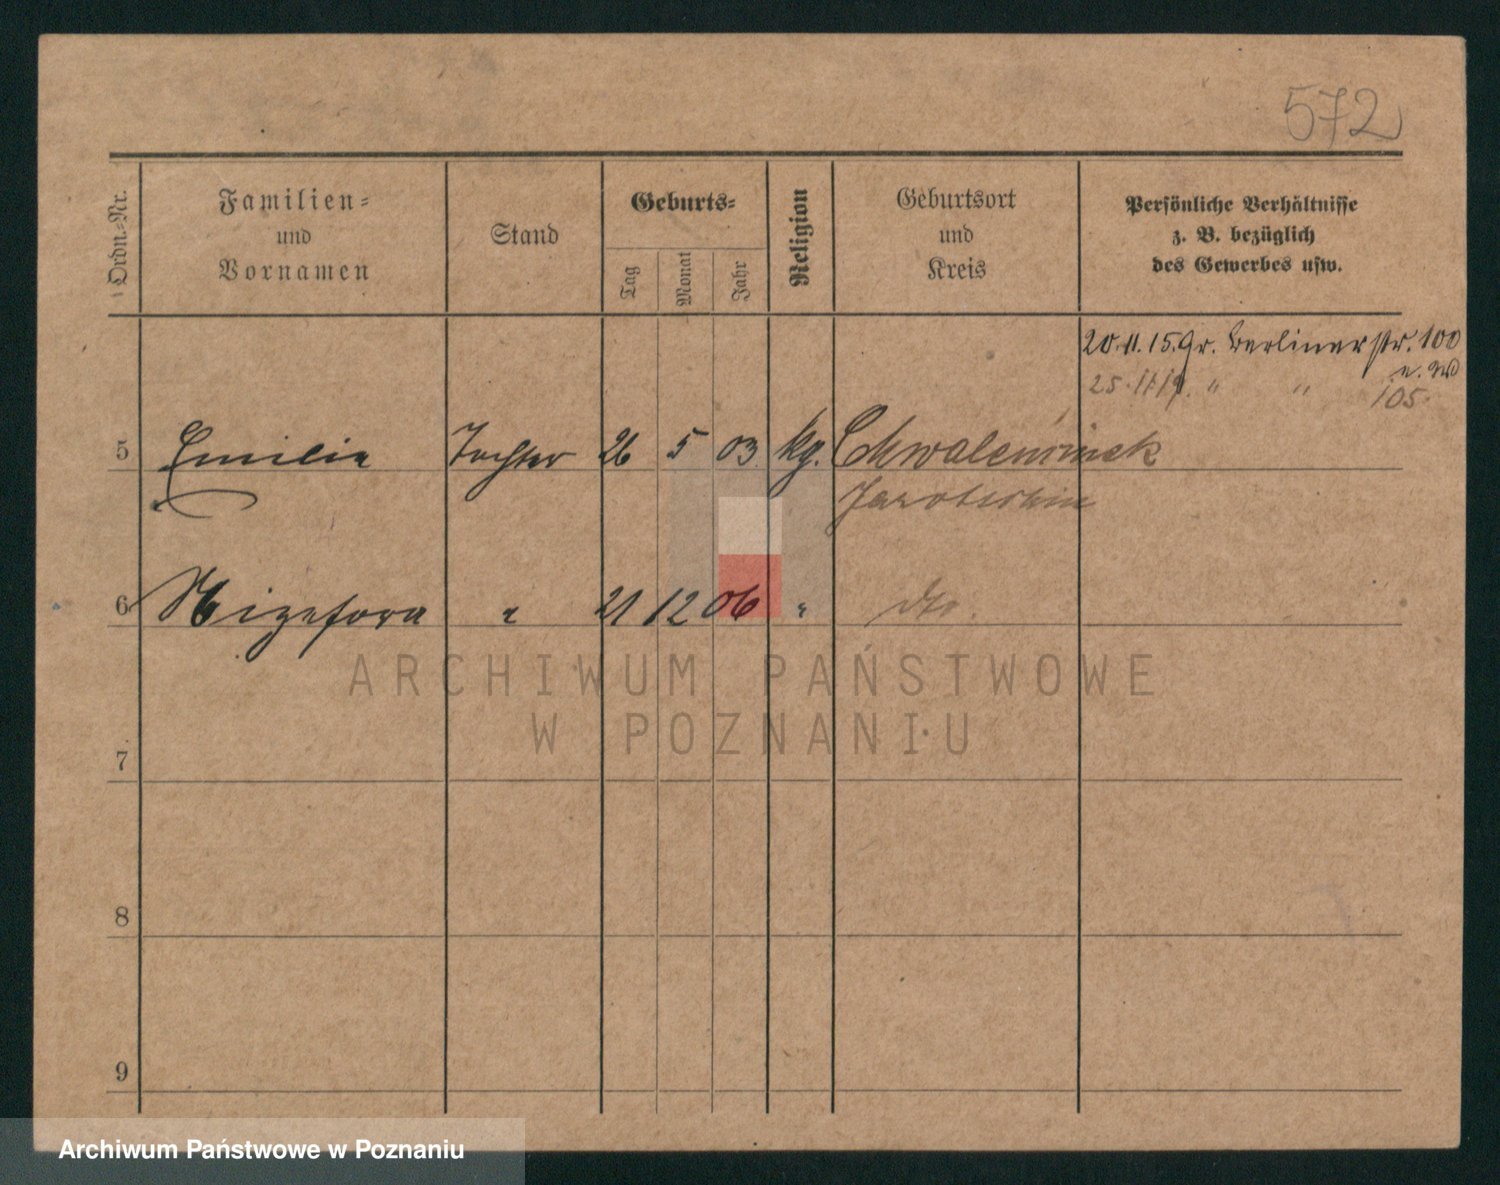 572
Ordn.-Nr.
Familien-
und
Vornamen
Stand
Geburts-
Tag
Monat
Jahr
Religion
Geburtsort
und
Kreis
Persönliche Verhältnisse
z. B. bezüglich
des Gewerbes usw.
20.11.15. Gr. Berlinerstr. 100
25.11.19. " " 105.
5 Emilie Tochter 26 5 03 kg.
Jarotschin
6 Nizefora " 21 12 06 " dto.
ARCHIWUM PAŃSTWOWE
W POZNANIU
7
8
9
Archiwum Państwowe w Poznaniu